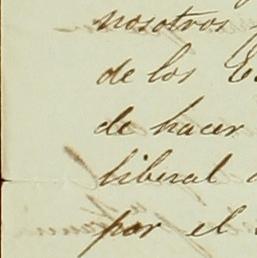 nosotros
de los
de hacer
liberal
por el